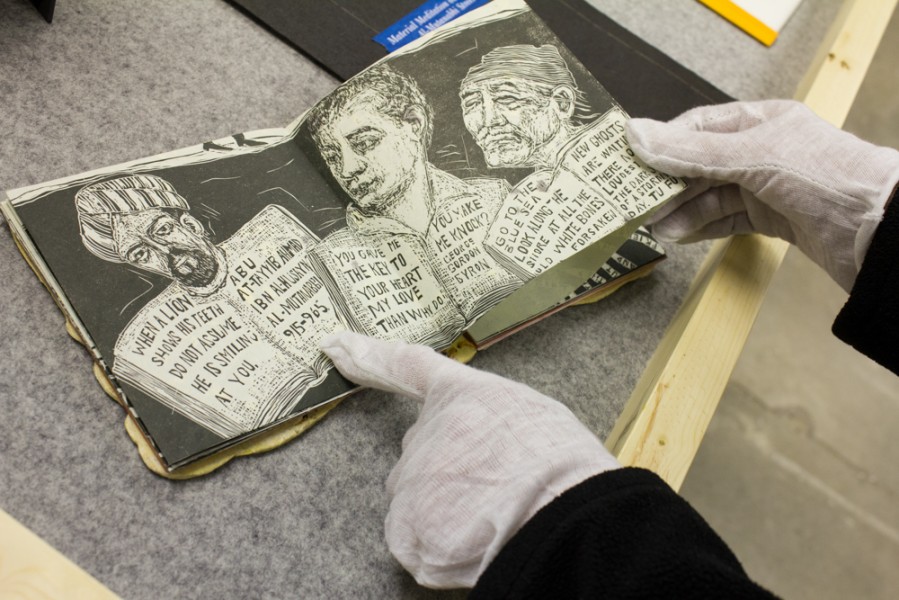 Material Meditation
Al-Mutanabbi Street
WHEN A LION
SHOWS HIS TEETH
DO NOT ASSUME
HE IS SMILING
AT YOU.
ABU
AT-TAYYIB AHMD
IBN ALHUSAYN
AL-MUTANABBI
915-965
YOU GAVE ME
THE KEY TO
YOUR HEART
MY LOVE
THAN WHY DO
YOU MAKE
ME KNOCK?
GEORGE
GORDON
BYRON
GO TO THE
SEA
LOOK ALONG THE
SHORE AT ALL THE
OLD WHITE BONES
FORSAKEN
NEW GHOSTS
ARE WAILING
THERE NOW
THE DARK
STORMY
DAY. TU FU